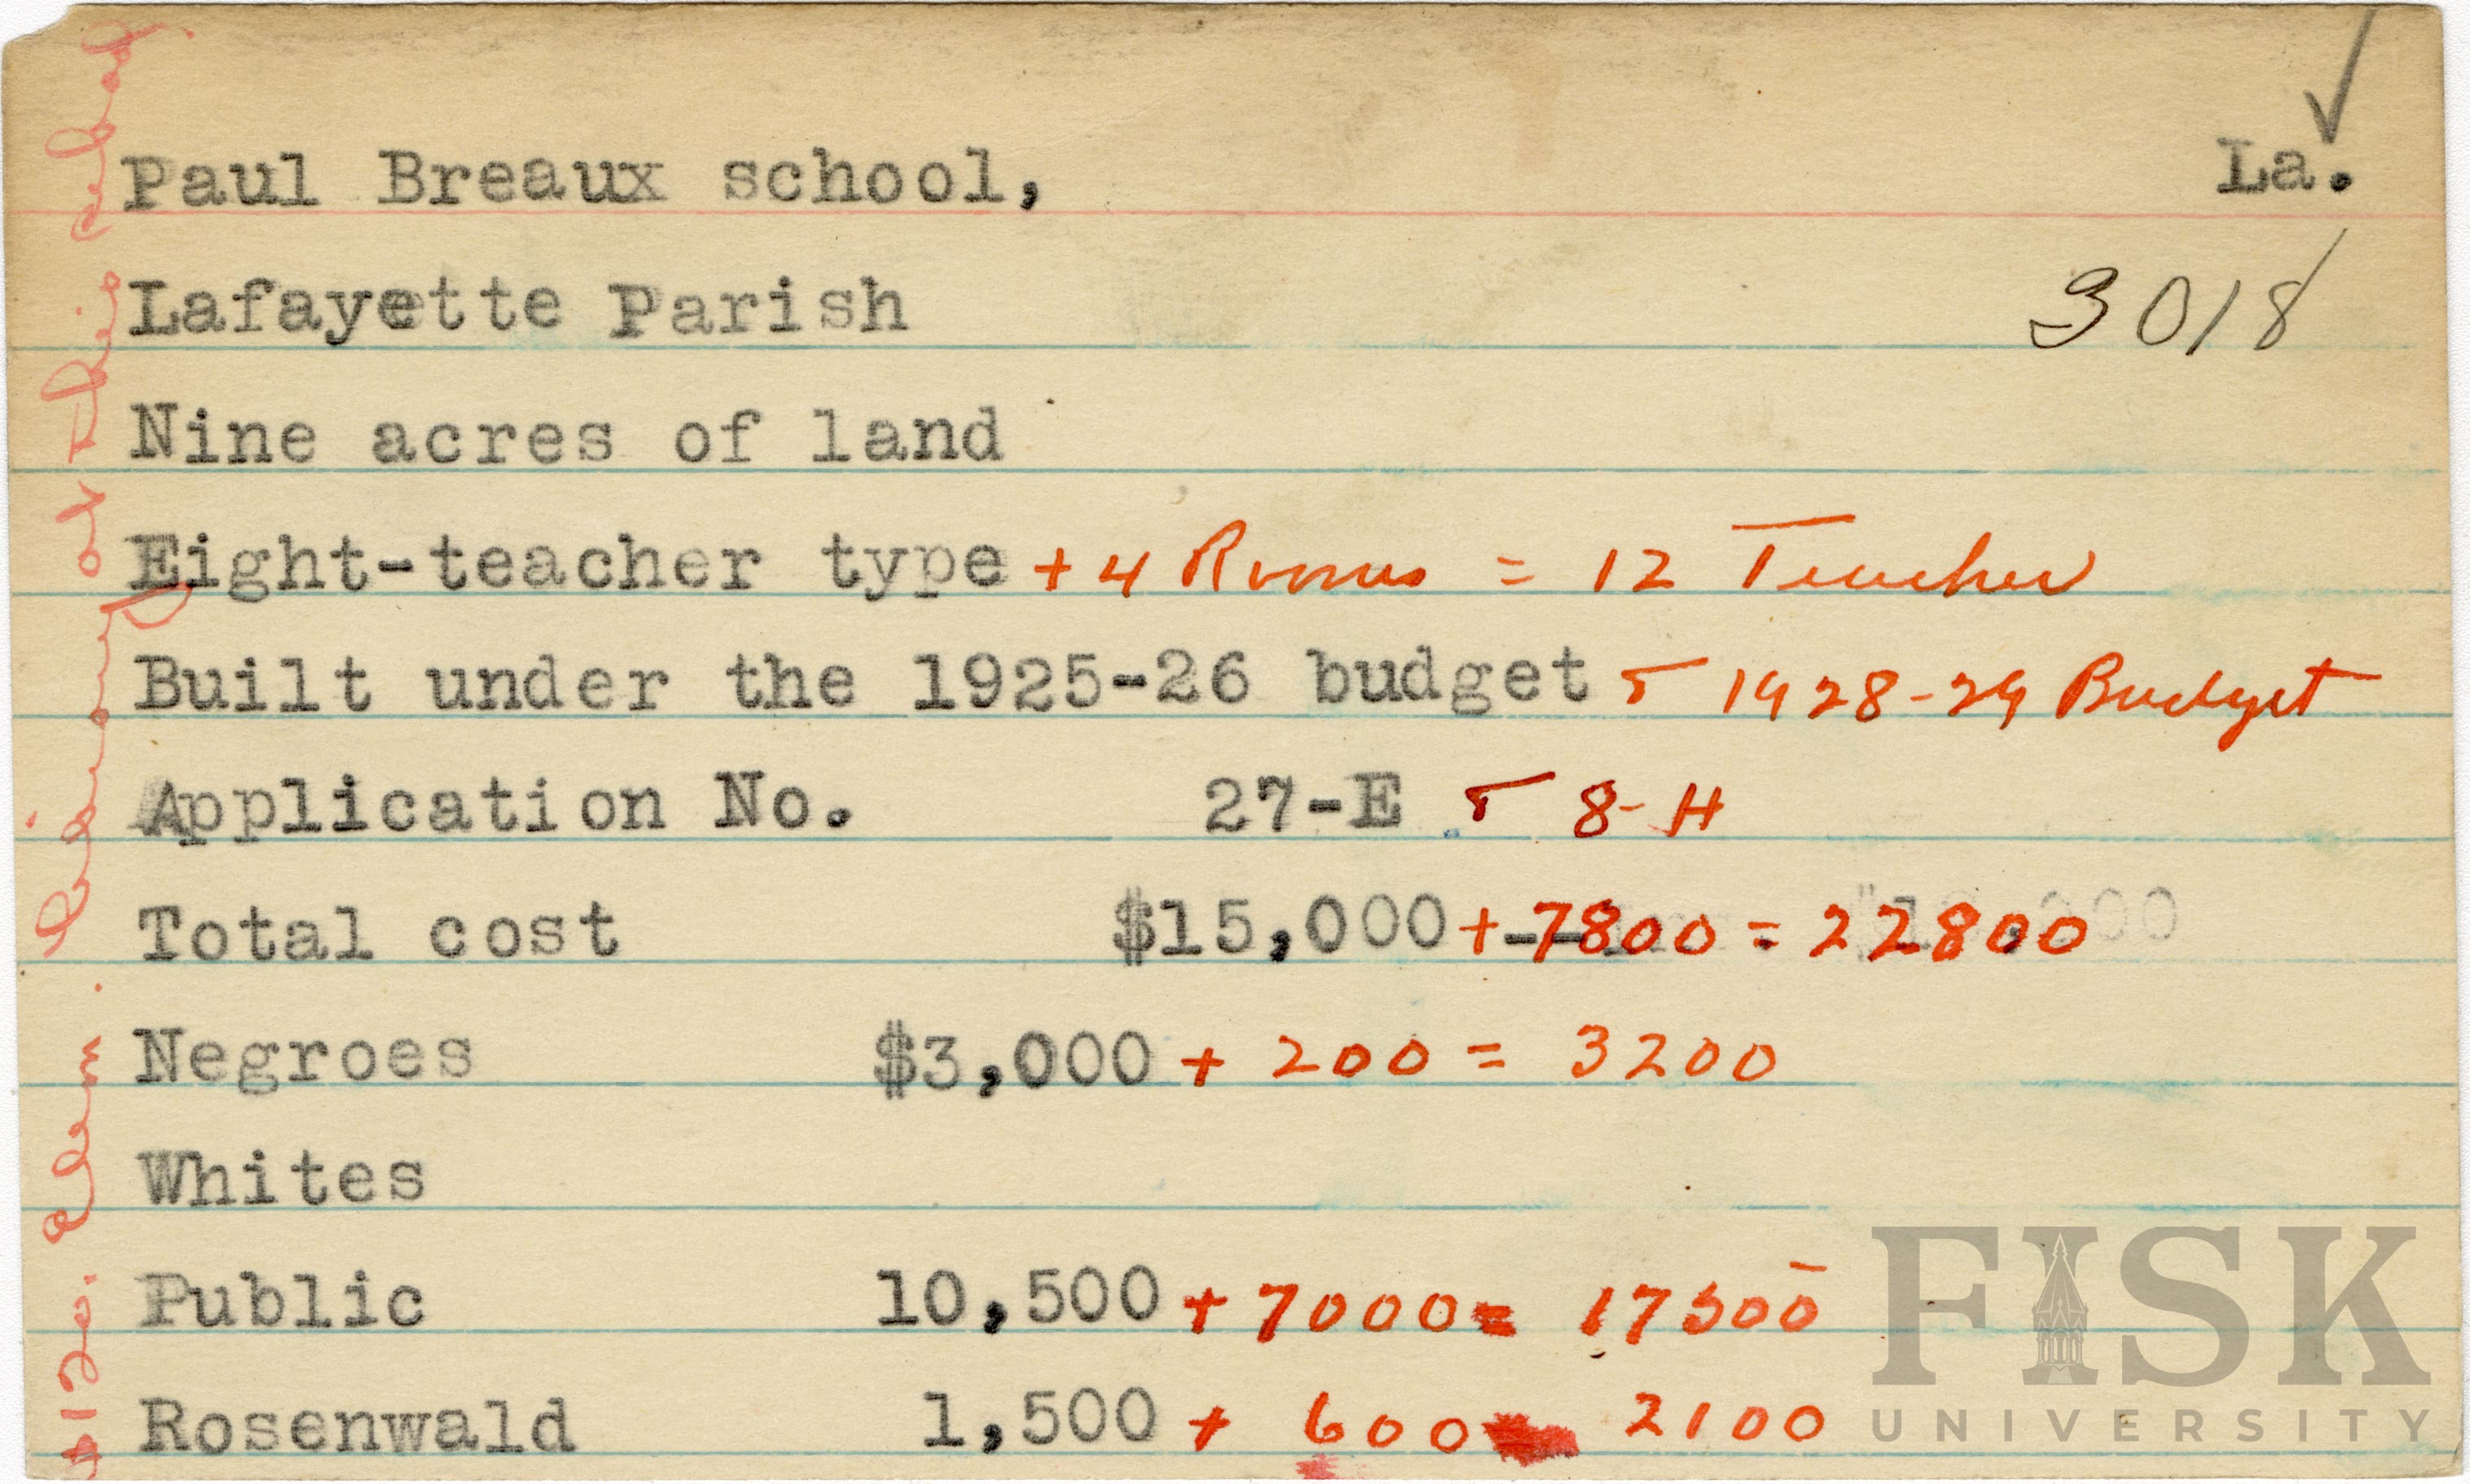 Paul Breaux school, La. ✓
Lafayette Parish 3018
Nine acres of land
Eight-teacher type + 4 Rooms = 12 Teacher
Built under the 1925-26 budget & 1928-29 Budget
Application No. 27-E & 8-H
Total cost $15,000 + 7800 = 22800
Negroes $3,000 + 200 = 3200
Whites
Public 10,500 + 7000 = 17500
Rosenwald 1,500 + 600 = 2100
$120. Elem. Library at this school.
FISK
UNIVERSITY